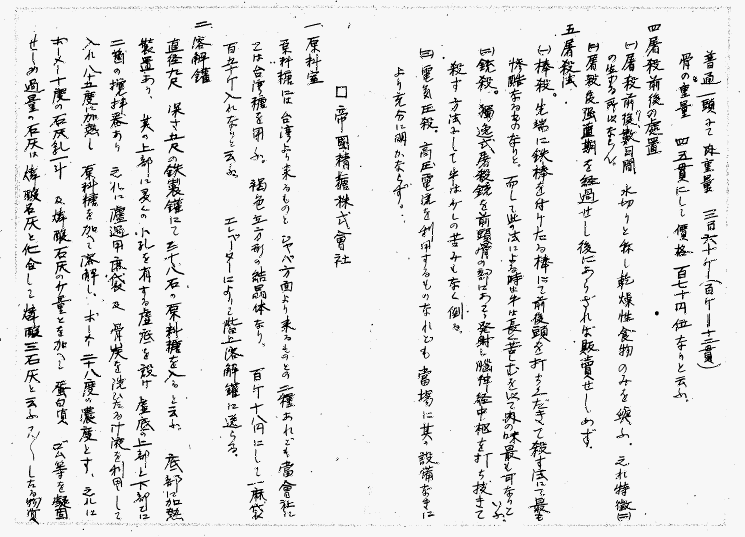 普通一頭ニテ 肉重量 三百六十ケ(百ケ=十二貫)
骨の重量 四五貫にして價格 百七十円位なりと云ふ。
四 屠殺前後の處置
(一) 屠殺前後数日間 水切りと称し乾燥性食物のみを與ふ。之れ特徴(三)
の生ずる所以ならん。
(二) 屠殺後強直期を経過せし後にあらざれば販賣せしめず。
五 屠殺法。
(一) 棒殺。先端に鉄棒を付けたる棒にて前後頭を打ちくだきて殺す法にて最も
惨酷なるものなりと。而して此の法による時は牛は長く苦しむを以て肉の味最も甘なりと
いふ。
(二) 銃殺。獨逸式屠殺銃を前頭骨の部にあて發射し腦神経中枢を打ち抜きて
殺す方法にして牛は少しの苦みもなく倒る。
(三) 電気圧殺。高圧電流を利用するものなれども 當場に其の設備なきに
より充分に明かならず。
□ 帝國精糖株式會社
一 原料室
原料糖には台湾より来るものと ジャバ方面より来るものとの二種あれども當會社に
ては台湾糖を用ふ。褐色立方形の結晶体なり。 百ケ十八円にして一麻袋
百五十ケ入れなりと云ふ。 エレベーターによりて階上溶解鑵に送らる。
二 溶解鑵
直径九尺 深さ五尺の鉄製鑵にて三十八石の原料糖を入ると云ふ 底部に加熱
装置あり、其の上部に多くの小孔を有する虚底を設け 虚底の上部と下部とに
二箇の撹拌器あり 之れに濾過用麻袋 及 骨炭を洗ひたる汁液を利用して
入れ 八十五度に加熱し 原料糖を加へて溶解し、ボーメ 二十八度の濃度とす。之れに
ボーメー十度の石灰乳一斗 及 燐酸石灰の少量とを加へ 蛋白質 ゴム等を凝固
せしめ過量の石灰は燐酸石灰と化合して 燐酸三石灰と云ふ したる物質